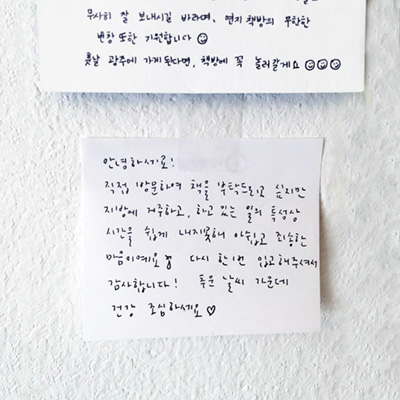 무사히 잘 보내시길 바라며, 연지책방의 무한한
번창 또한 기원합니다 ☺
훗날 광주에 가게된다면, 책방에 꼭 놀러갈게요 ☺☺☺
안녕하세요!
직접 방문하여 책을 부탁드리고 싶지만
지방에 거주하고, 하고있는 일의 특성상
시간을 쉽게 내지못해 아쉽고 죄송한
마음이예요 다시 한번 입고해주셔서
감사합니다! 추운 날씨 가운데
건강 조심하세요 ♡